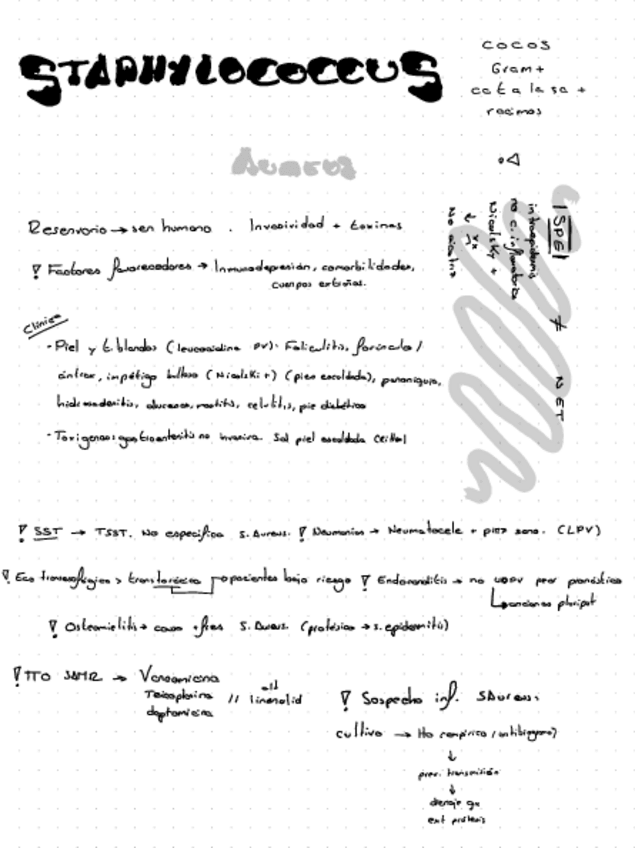 STAPHYLOCOCCUS
cocos
Gram+
catalasa +
racimos
Aureus
ISPE!
intraepidermis
no c. inflamatorias
Nicolsky +
no cicatriz
≠ NET
Reservorio → ser humano . Invasividad + toxinas
Factores favorecedores → Inmunodepresión, comorbilidades,
cuerpos extraños.
Clínica
- Piel y t. blandos (leucocidina PV): Foliculitis, forúnculo /
ántrax, impétigo bulloso (Nicolski +) (piel escaldada), paroniquia,
hidrosadenitis, abscesos, mastitis, celulitis, pie diabético
- Toxigenos: gastroenteritis no invasiva. Sd piel escaldada
SST → TSST. No específico S. Aureus. Neumonías → Neumatocele + sano. (LPV)
Eco transesofágico > transtorácico pacientes bajo riesgo Endocarditis → no UDPV peor pronóstico
ancianos pluripat
Osteomielitis → causa + frec S. Aureus. (protésica → s. epidermitis)
TTO SAMR → Vancomicina
Teicoplanina // linezolid
daptomicina
Sospecha inf. S Aureus.
cultivo → tto empírico (antibiograma)
↓
prev. transmisión
↓
drenaje qx
ext prótesis